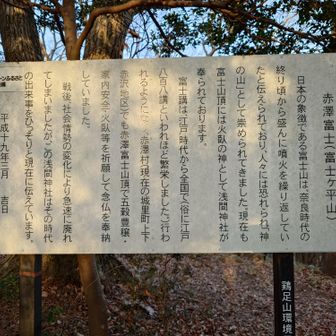 赤澤富士(富士ヶ平山)
日本の象徴である富士山は、奈良時代の
終り頃から盛んに噴火を繰り返してい
たと伝えられており、人々には恐れられ、神
の山として崇められてきました。現在も
富士山頂には火臥の神として浅間神社が
奉られております。
富士講は江戸時代から全国で(俗に江戸
八百八講といわれほど繁栄しました。)行わ
れるようになり、赤澤村(現在の城里町上下
赤沢地区)でも赤澤富士山頂で五穀豊穣・
家内安全・火臥等を祈願して念仏を奉納
していました。
戦後、社会情勢の変化により急速に廃れ
てしまいましたが、この浅間神社はその時代
の出来事をひっそりと現在に伝えています。
平成十九年三月 吉日
鶏足山環境